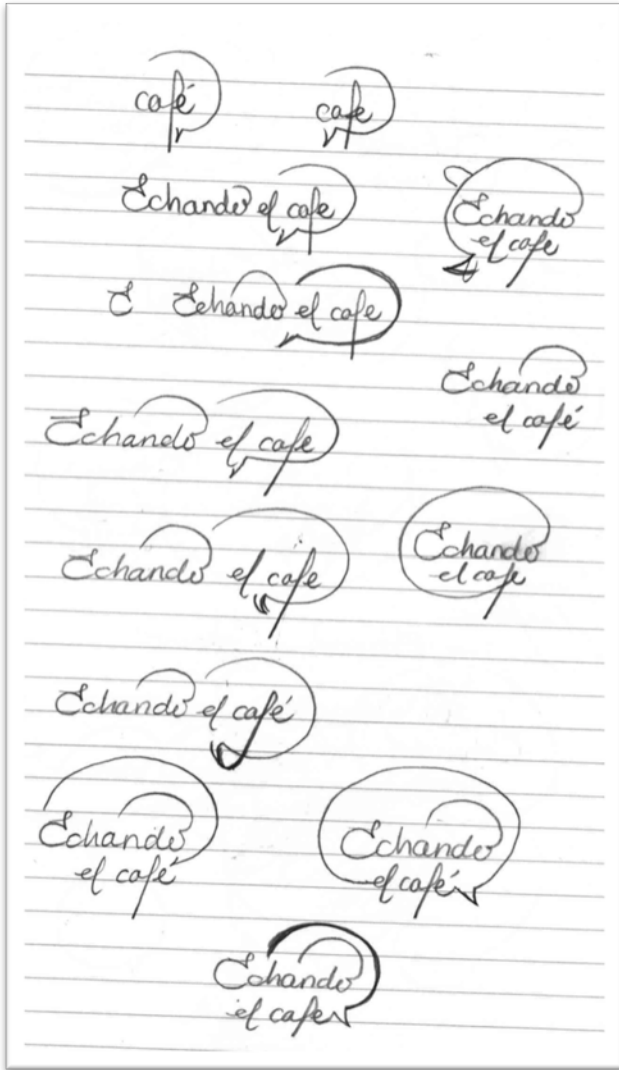 café
cafe
Echando el cafe
Echando
el cafe
E Echando el cafe
Echando
el café
Echando el cafe
Echando
el cafe
Echando el cafe
Echando el café
Echando
el café
Echando
el café
Echando
el cafe